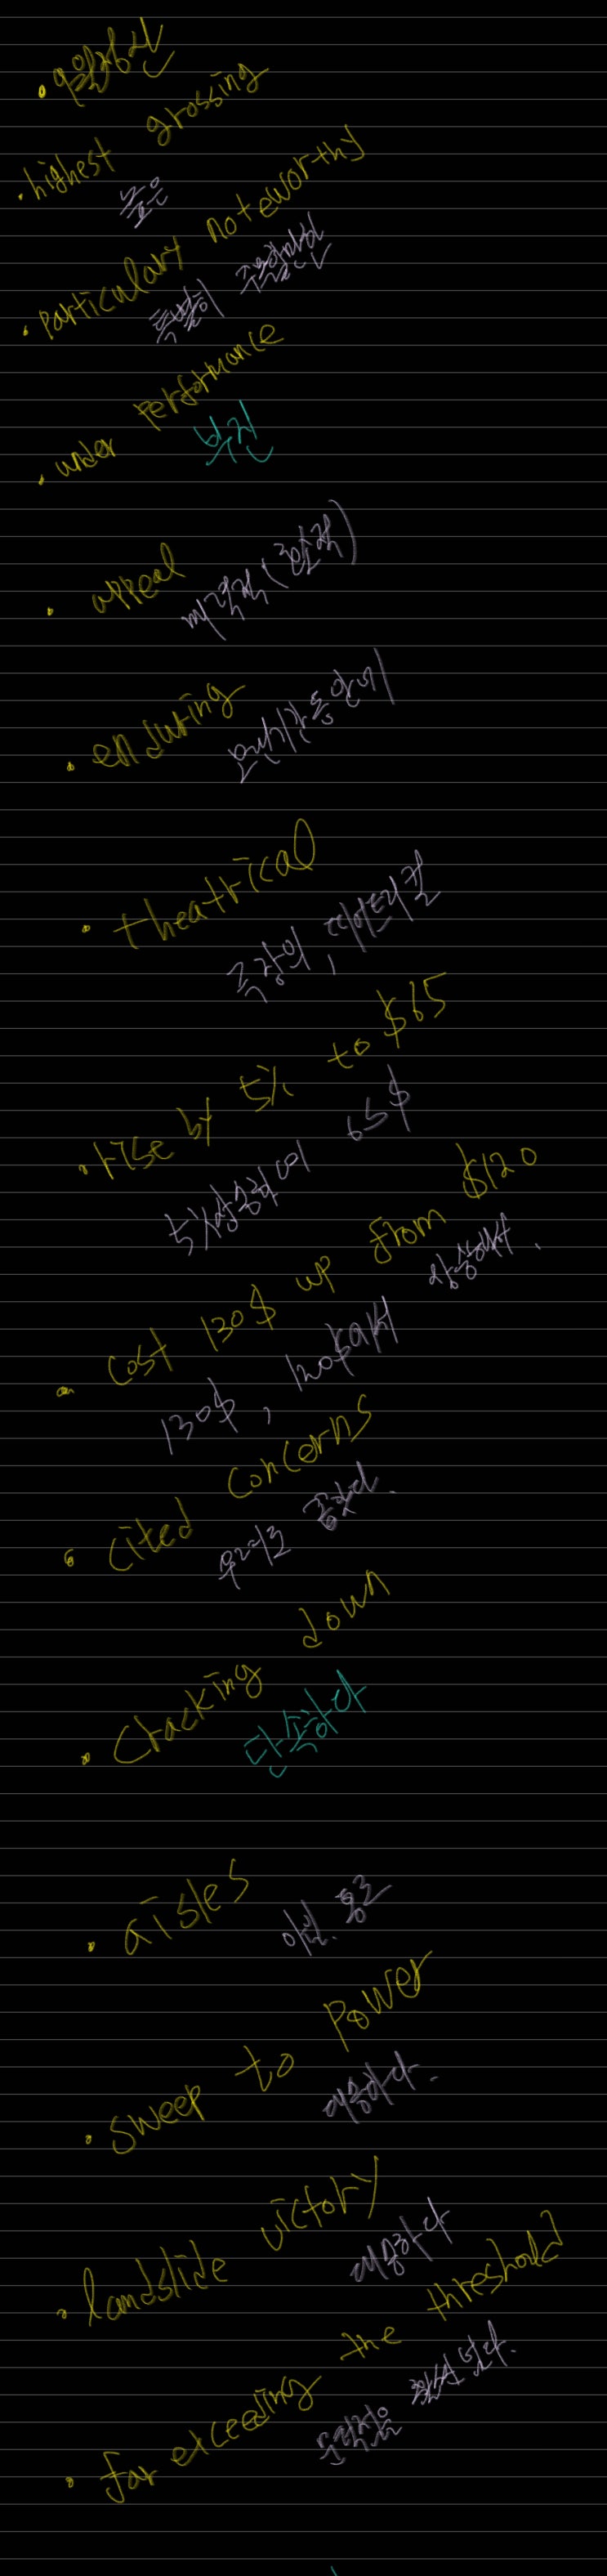 highest grossing
높은
particulary noteworthy
특별히 주목할만한
under performance
부진
appeal
매력적 (현수적)
enduring
오랜기간동안에
theatrical
극장의, 띠어트리컬
rise by 5% to $65
5% 상승하여 65$
cost 130$ up from $120
130$, 120$에서 상승해서.
cited concerns
우려를 꼽았다.
cracking down
단속하다
aisles
아일. 통로
sweep to power
대승하다.
landslide victory
대승하다
far exceeding the threshold
훨씬 넘다.